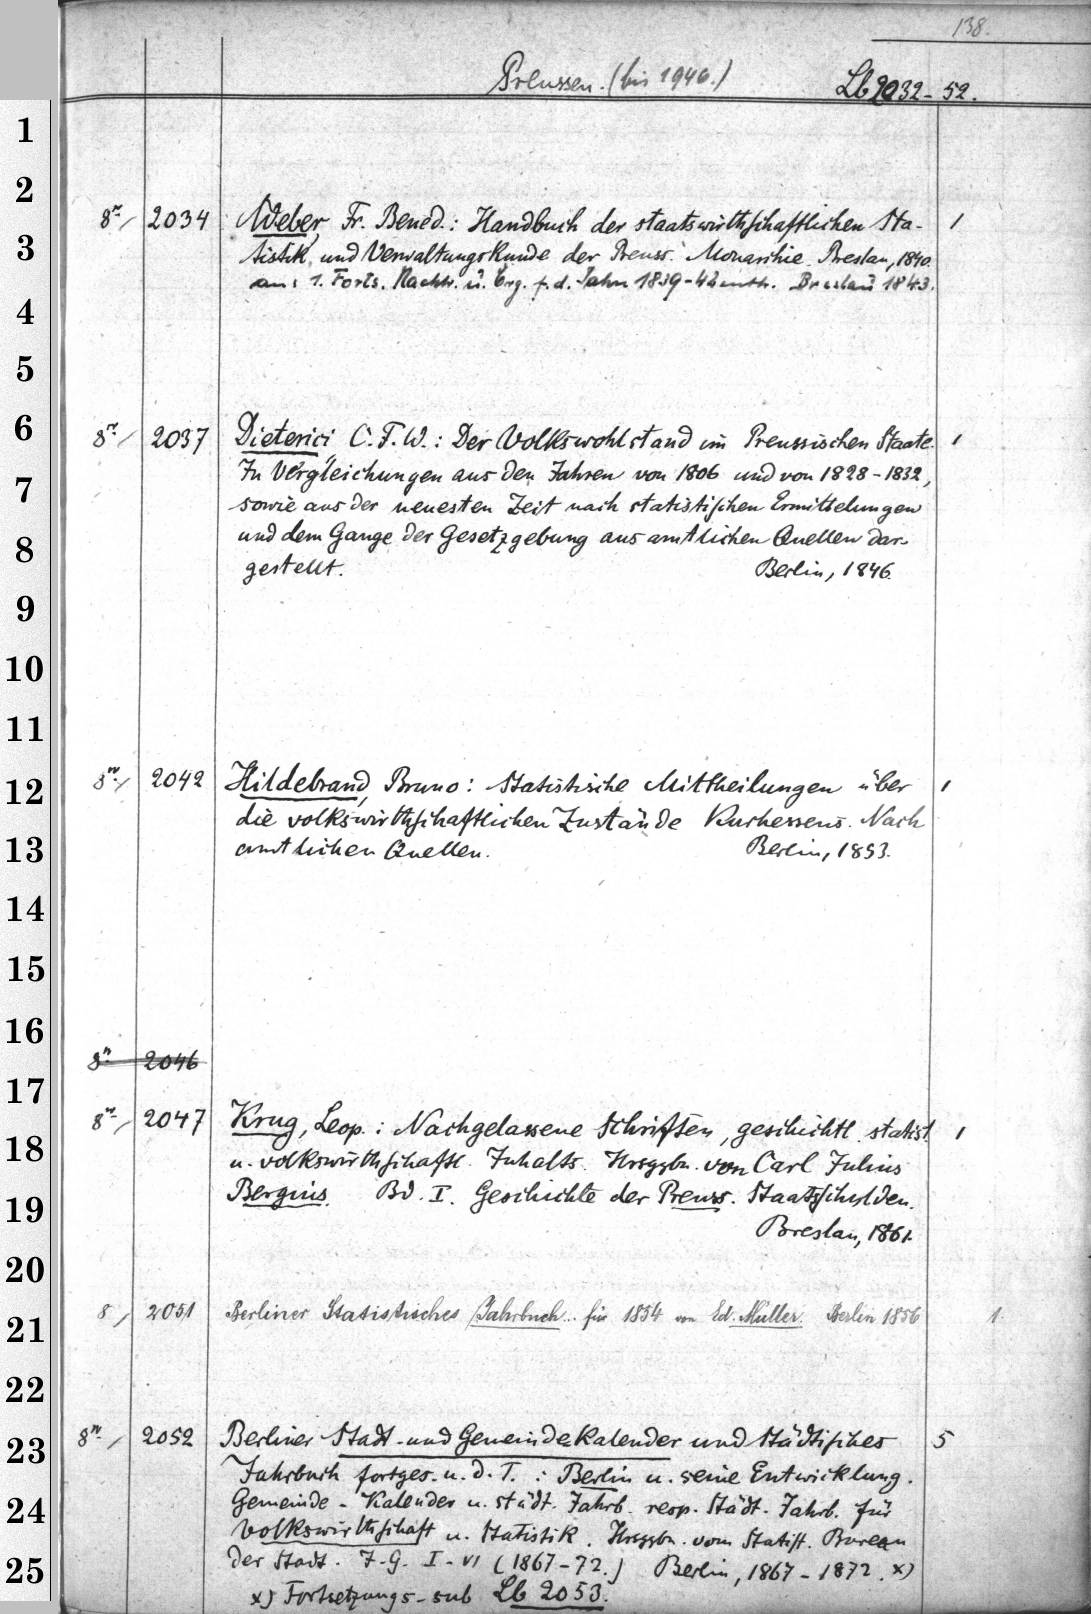 138.
Preussen. (bis 1946.) Lb 2032-52.
8º / 2034 Weber, Fr. Bened.: Handbuch der staatswirthschaftlichen Sta- 1
tistik und Verwaltungskunde der Preuss. Monarchie. Breslau, 1840.
1. Forts. Nachtr. u. Erg. f. d. Jahre 1839-42 enth. Breslau 1843.
8º / 2037 Dieterici, C. F. W.: Der Volkswohlstand im Preussischen Staate. 1
In Vergleichungen aus den Jahren von 1806 und von 1828-1832,
sowie aus der neuesten Zeit nach statistischen Ermittelungen
und dem Gange der Gesetzgebung aus amtlichen Quellen dar-
gestellt. Berlin, 1846.
8º / 2042 Hildebrand, Bruno: Statistische Mittheilungen über 1
die volkswirthschaftlichen Zustände Kurhessens. Nach
amtlichen Quellen. Berlin, 1853.
8º 2046
8º / 2047 Krug, Leop.: Nachgelassene Schriften, geschichtl. statist. 1
u. volkswirthschaftl. Inhalts. Hrsggbn. von Carl Julius
Bergius. Bd. I. Geschichte der Preuss. Staatsschulden.
Breslau, 1861.
8 / 2051 Berliner Statistisches Jahrbuch.. für 1854 von Ed. Müller. Berlin 1856 1.
8º / 2052 Berliner Stadt- und Gemeindekalender und Städtisches 5
Jahrbuch fortges. u. d. T.: Berlin u. seine Entwicklung.
Gemeinde-Kalender u. städt. Jahrb. resp. Städt. Jahrb. für
Volkswirthschaft u. Statistik. Hrsggbn. vom Statist. Bureau
der Stadt. J-G. I-VI (1867-72.) Berlin, 1867-1872. x)
x) Fortsetzungs- sub Lb 2053.
1
2
3
4
5
6
7
8
9
10
11
12
13
14
15
16
17
18
19
20
21
22
23
24
25